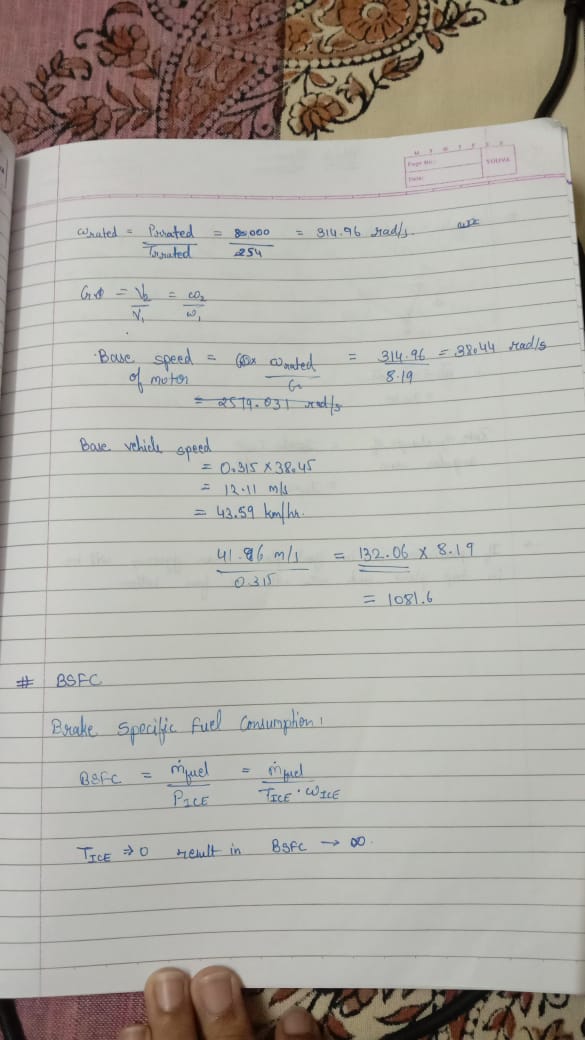 Page No.:
Date:
YOUVA
ωrated = Prated / Trated = 80000 / 254 = 314.96 rad/s.
G = V2 / V1 = ω2 / ω1
Base speed of motor = ωrated / G = 314.96 / 8.19 = 38.44 rad/s
= 2579.031 rad/s
Base vehicle speed
= 0.315 × 38.45
= 12.11 m/s
= 43.59 km/hr.
41.96 m/s / 0.315 = 132.06 × 8.19
= 1081.6
# BSFC
Brake Specific Fuel Consumption
BSFC = ṁfuel / PICE = ṁfuel / TICE · ωICE
TICE → 0 result in BSFC → ∞.